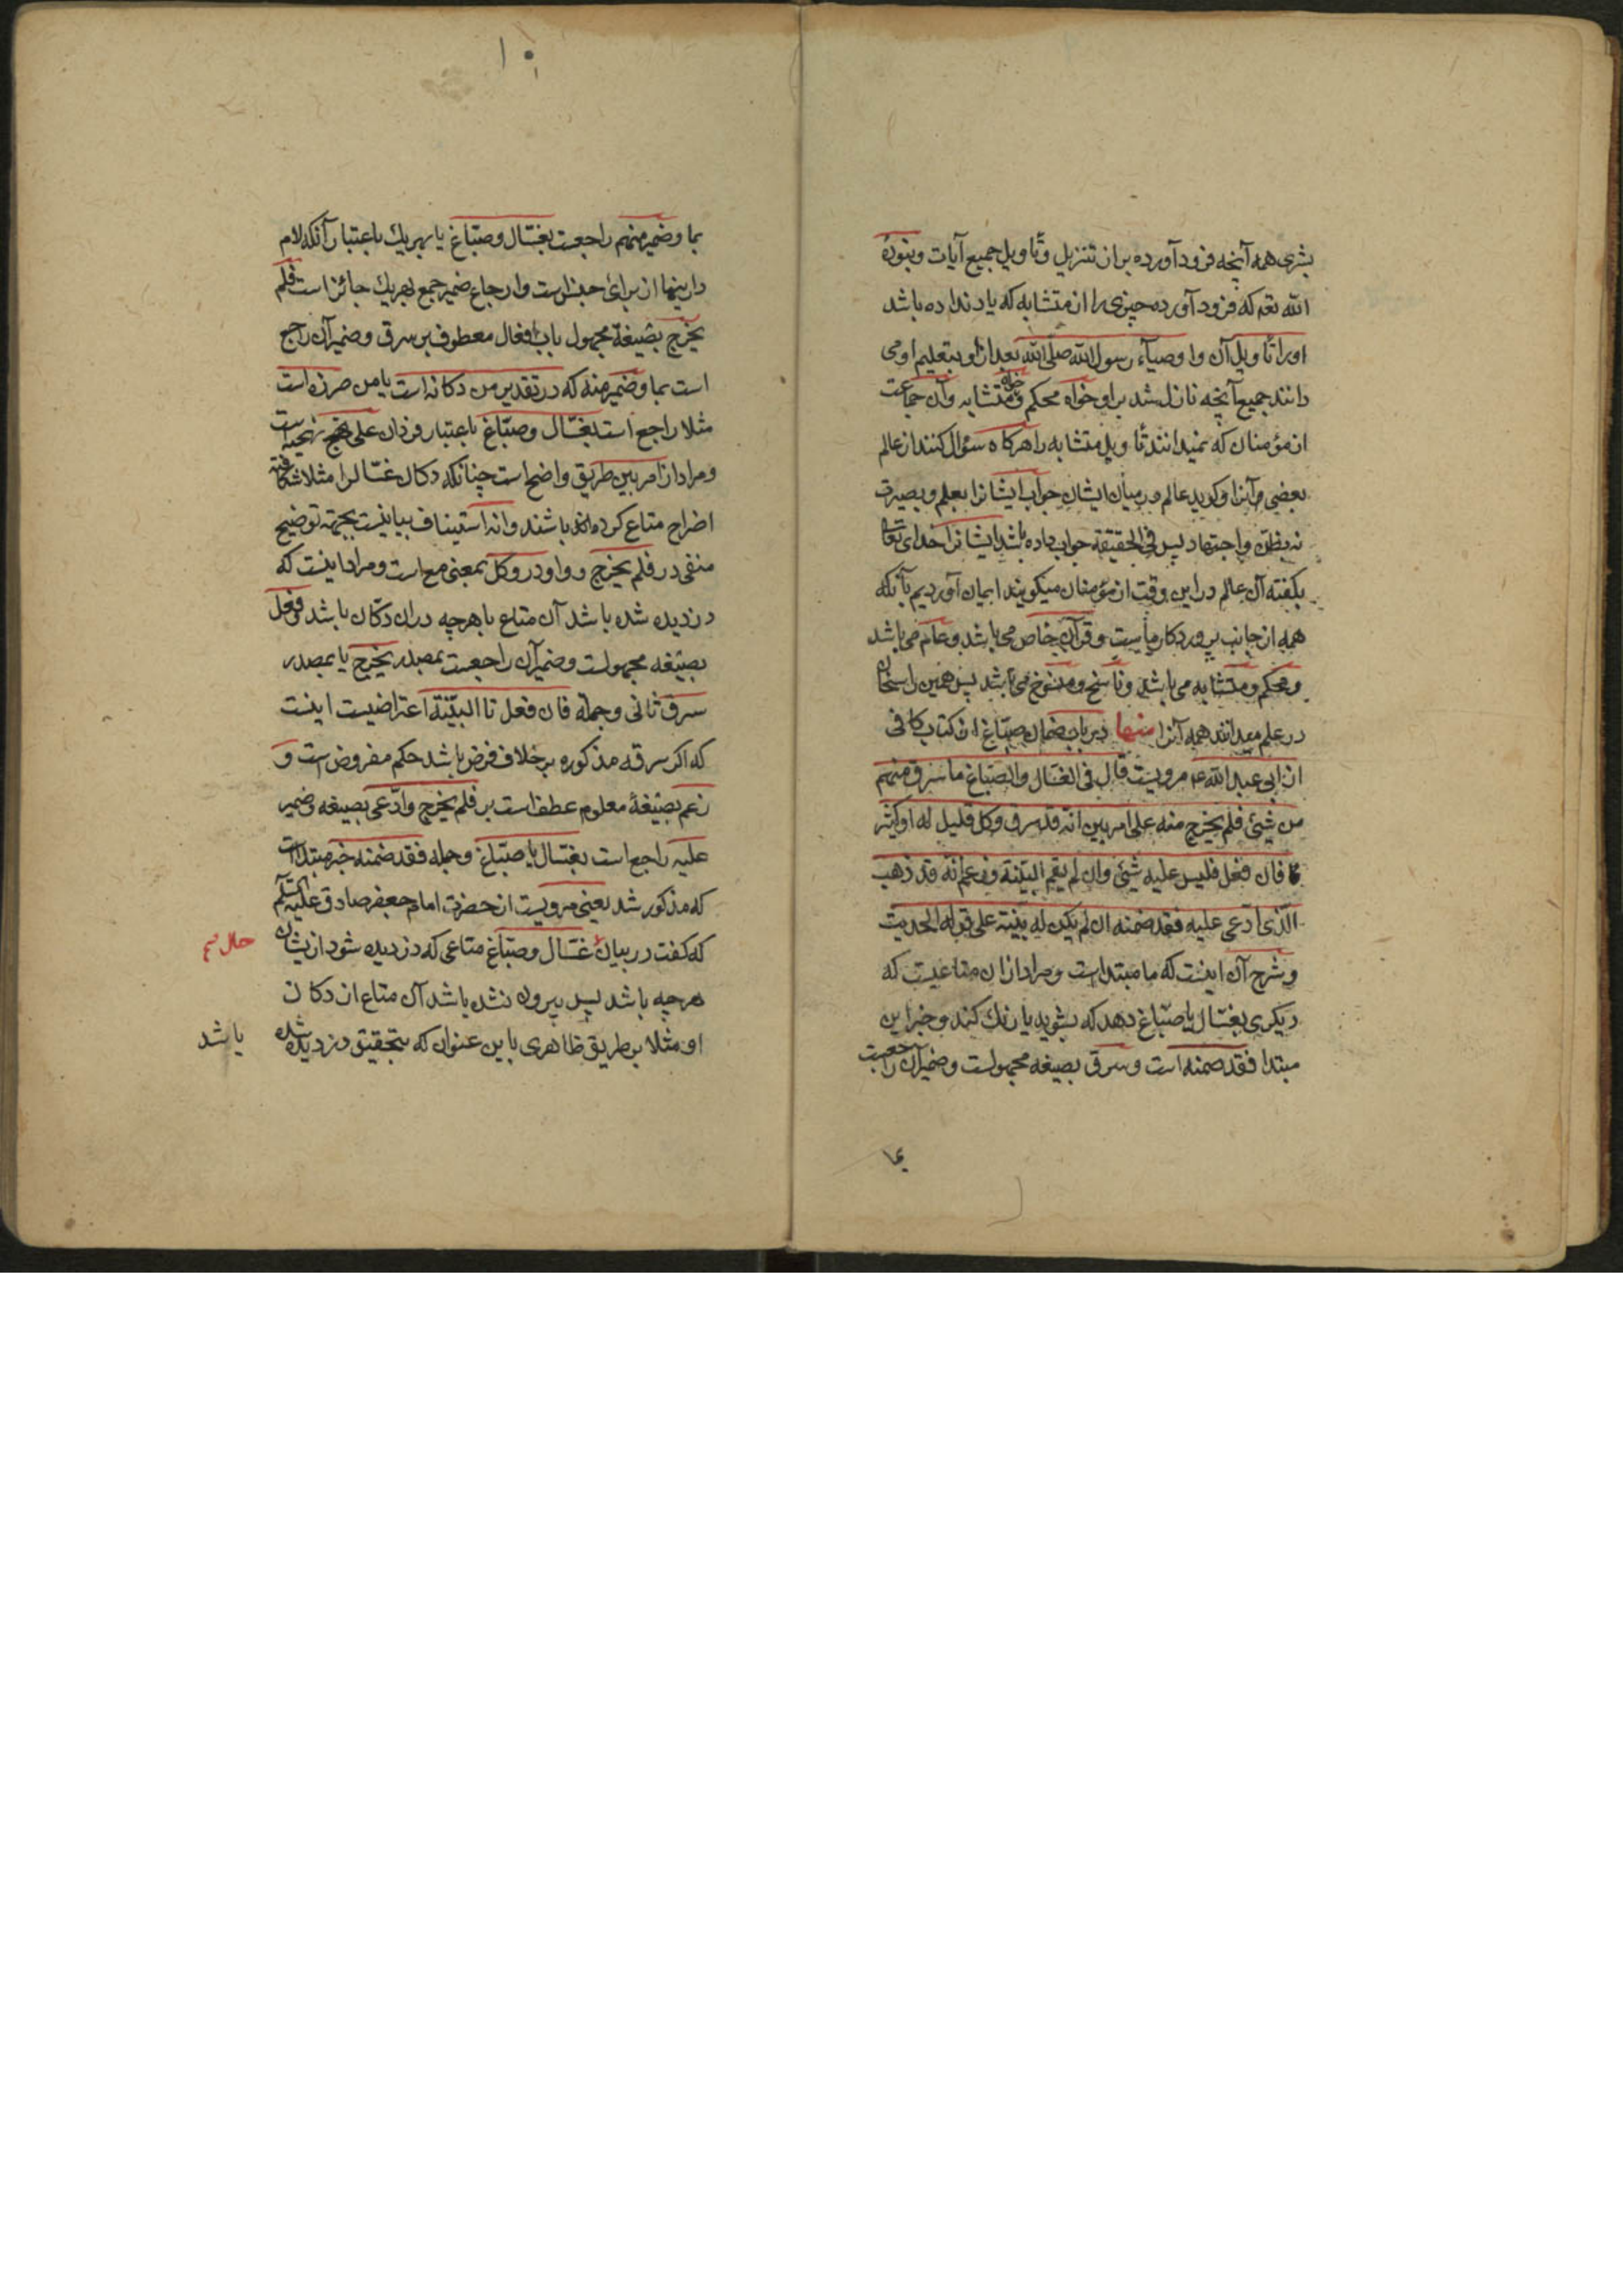 بشری همه آنچه فرود آورده بر ان تنزیل و تاویل جمیع آیات و نبوده
الله تعم که فرود آورده چیزی را از متشابه که یاد نداده باشد
او را تاویل آن و اوصیآء رسول الله صلی الله بعد از او بتعلیم او می
دانند جمیع آنچه نازل شد بر او خواه محکم و خواه متشابه و آن جماعت
از مؤمنان که نمیدانند تاویل متشابه را هرکاه سؤال کنند از عالم
بعضی و آنرا و کوید عالم در میان ایشان جواب ایشانرا بعلم و بصیرت
نه بظن و اجتهاد پس فی الحقیقة جواب داده باشد ایشانرا خدای تعالی
بکفته آن عالم در این وقت از مؤمنان میکویند ایمان آوردیم بآنکه
همه از جانب پروردکار ماست و قرآن خاص می باشد و عام می باشد
و محکم و متشابه می باشد و ناسخ و منسوخ می باشد پس همین راسخان
در علم میدانند همه آنرا منها در باب ضمان صباغ از کتاب کافی
از ابی عبد الله ع مرویست قال فی الغسال و الصباغ ما سرق منهم
من شیئ فلم یخرج منه علی امر بین انه قد سرق و کل قلیل له او کثیر
فان فعل فلیس علیه شیئ و ان لم یقم البینة و زعم انه قد ذهب
الذی ادعی علیه فقد ضمنه ان لم یکن له بینة علی قوله الحدیث
و شرح آن اینست که ما مبتداست و مراد از ان متاعیست که
دیکری بغسال یا صباغ دهد که بشوید یا رنك کند و خبر این
مبتدا فقد ضمنه است و سرق بصیغه مجهولست و ضمیر آن راجعست
بما
۱۰
بما و ضمیر منهم راجعست بغسال و صباغ یا بهریك باعتبار آنکه لام
در اینها از برای جنس است و ارجاع ضمیر جمع بهریك جائز است فلم
یخرج بصیغة مجهول باب افعال معطوف بر سرق و ضمیر آن راجع
است بما و ضمیر منه که در تقدیر من دکانه است یا من حرزه است
مثلا راجع است بغسال و صباغ باعتبار فردان علی نهجیه است
و مراد از امر بین طریق واضح است چنانکه دکان غسال را مثلا شکافته
اخراج متاع کرده باشند و انه استیناف بیانیست بجهة توضیح
منفی در فلم یخرج و واو در و کل بمعنی مع است و مراد اینست که
دزدیده شده باشد آن متاع با هرچه در ان دکان باشد و فعل
بصیغه مجهولست و ضمیر آن راجعست بمصدر یخرج یا بمصدر
سرق ثانی و جمله فان فعل تا البینة اعتراضیست اینست
که اکر سرقه مذکوره بر خلاف فرض باشد حکم مفروض است و
زعم بصیغهٔ معلوم عطف است بر فلم یخرج و ادعی بصیغه و ضمیر
علیه راجع است بغسال یا صباغ و جمله فقد ضمنه خبر مبتداست
که مذکور شد یعنی مرویست از حضرت امام جعفر صادق علیه السلم
که کفت در بیان غسال و صباغ متاعی که دزدیده شود از ایشان
حال
هرچه باشد پس بیرون نشده باشد آن متاع از دکان
او مثلا بر طریق ظاهری باین عنوان که بتحقیق دزدیده شده
باشد